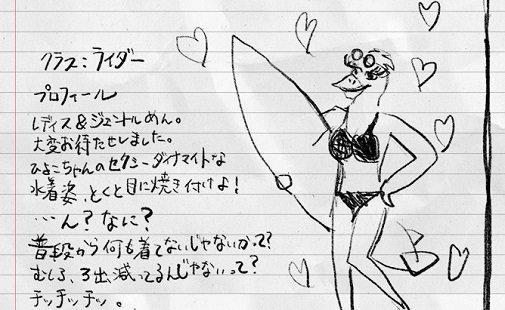 クラス：ライダー
プロフィール
レディス＆ジェントルめん。
大変お待たせしました。
ひよこちゃんのセクシーダイナマイトな
水着姿、とくと目に焼き付けよ！
…ん？なに？
普段から何も着てないじゃないかって？
むしろ、露出減ってるんじゃないって？
チッチッチッ。